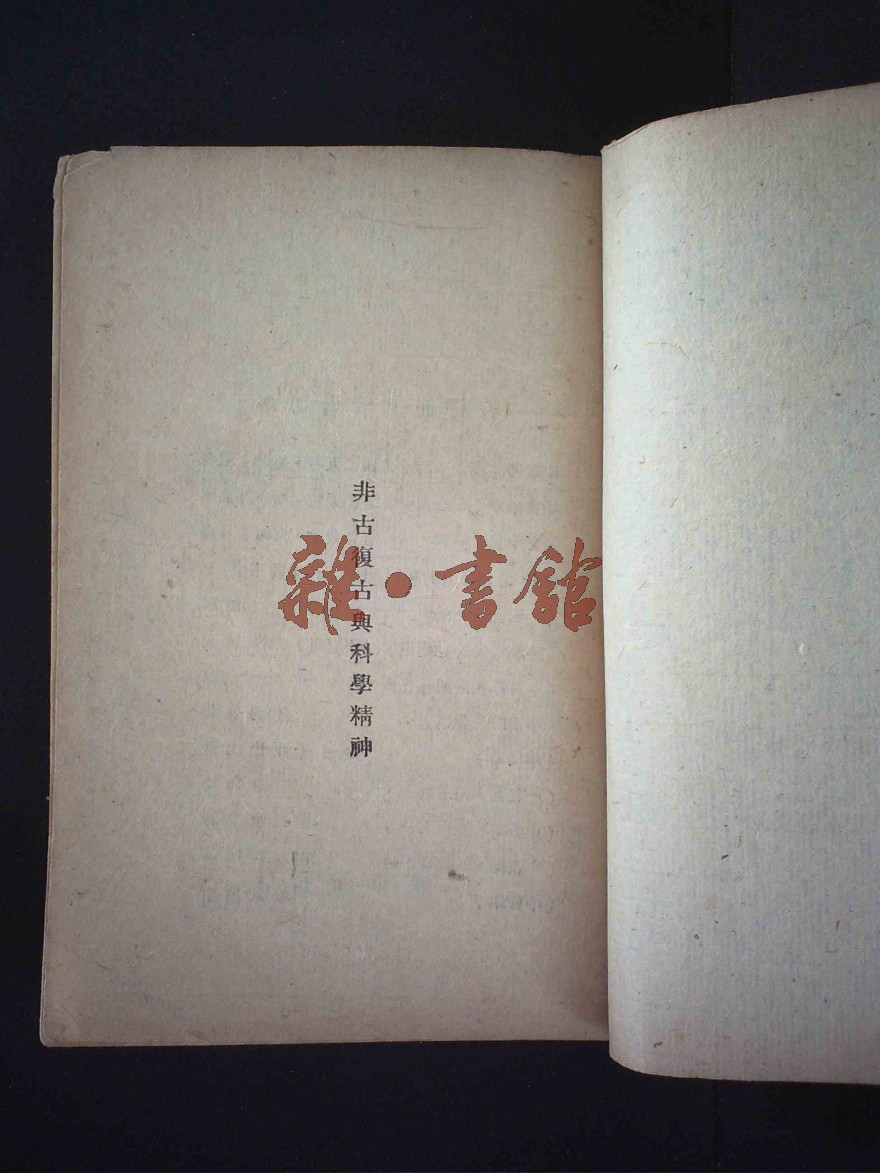 非古復古與科學精神
雜·書館